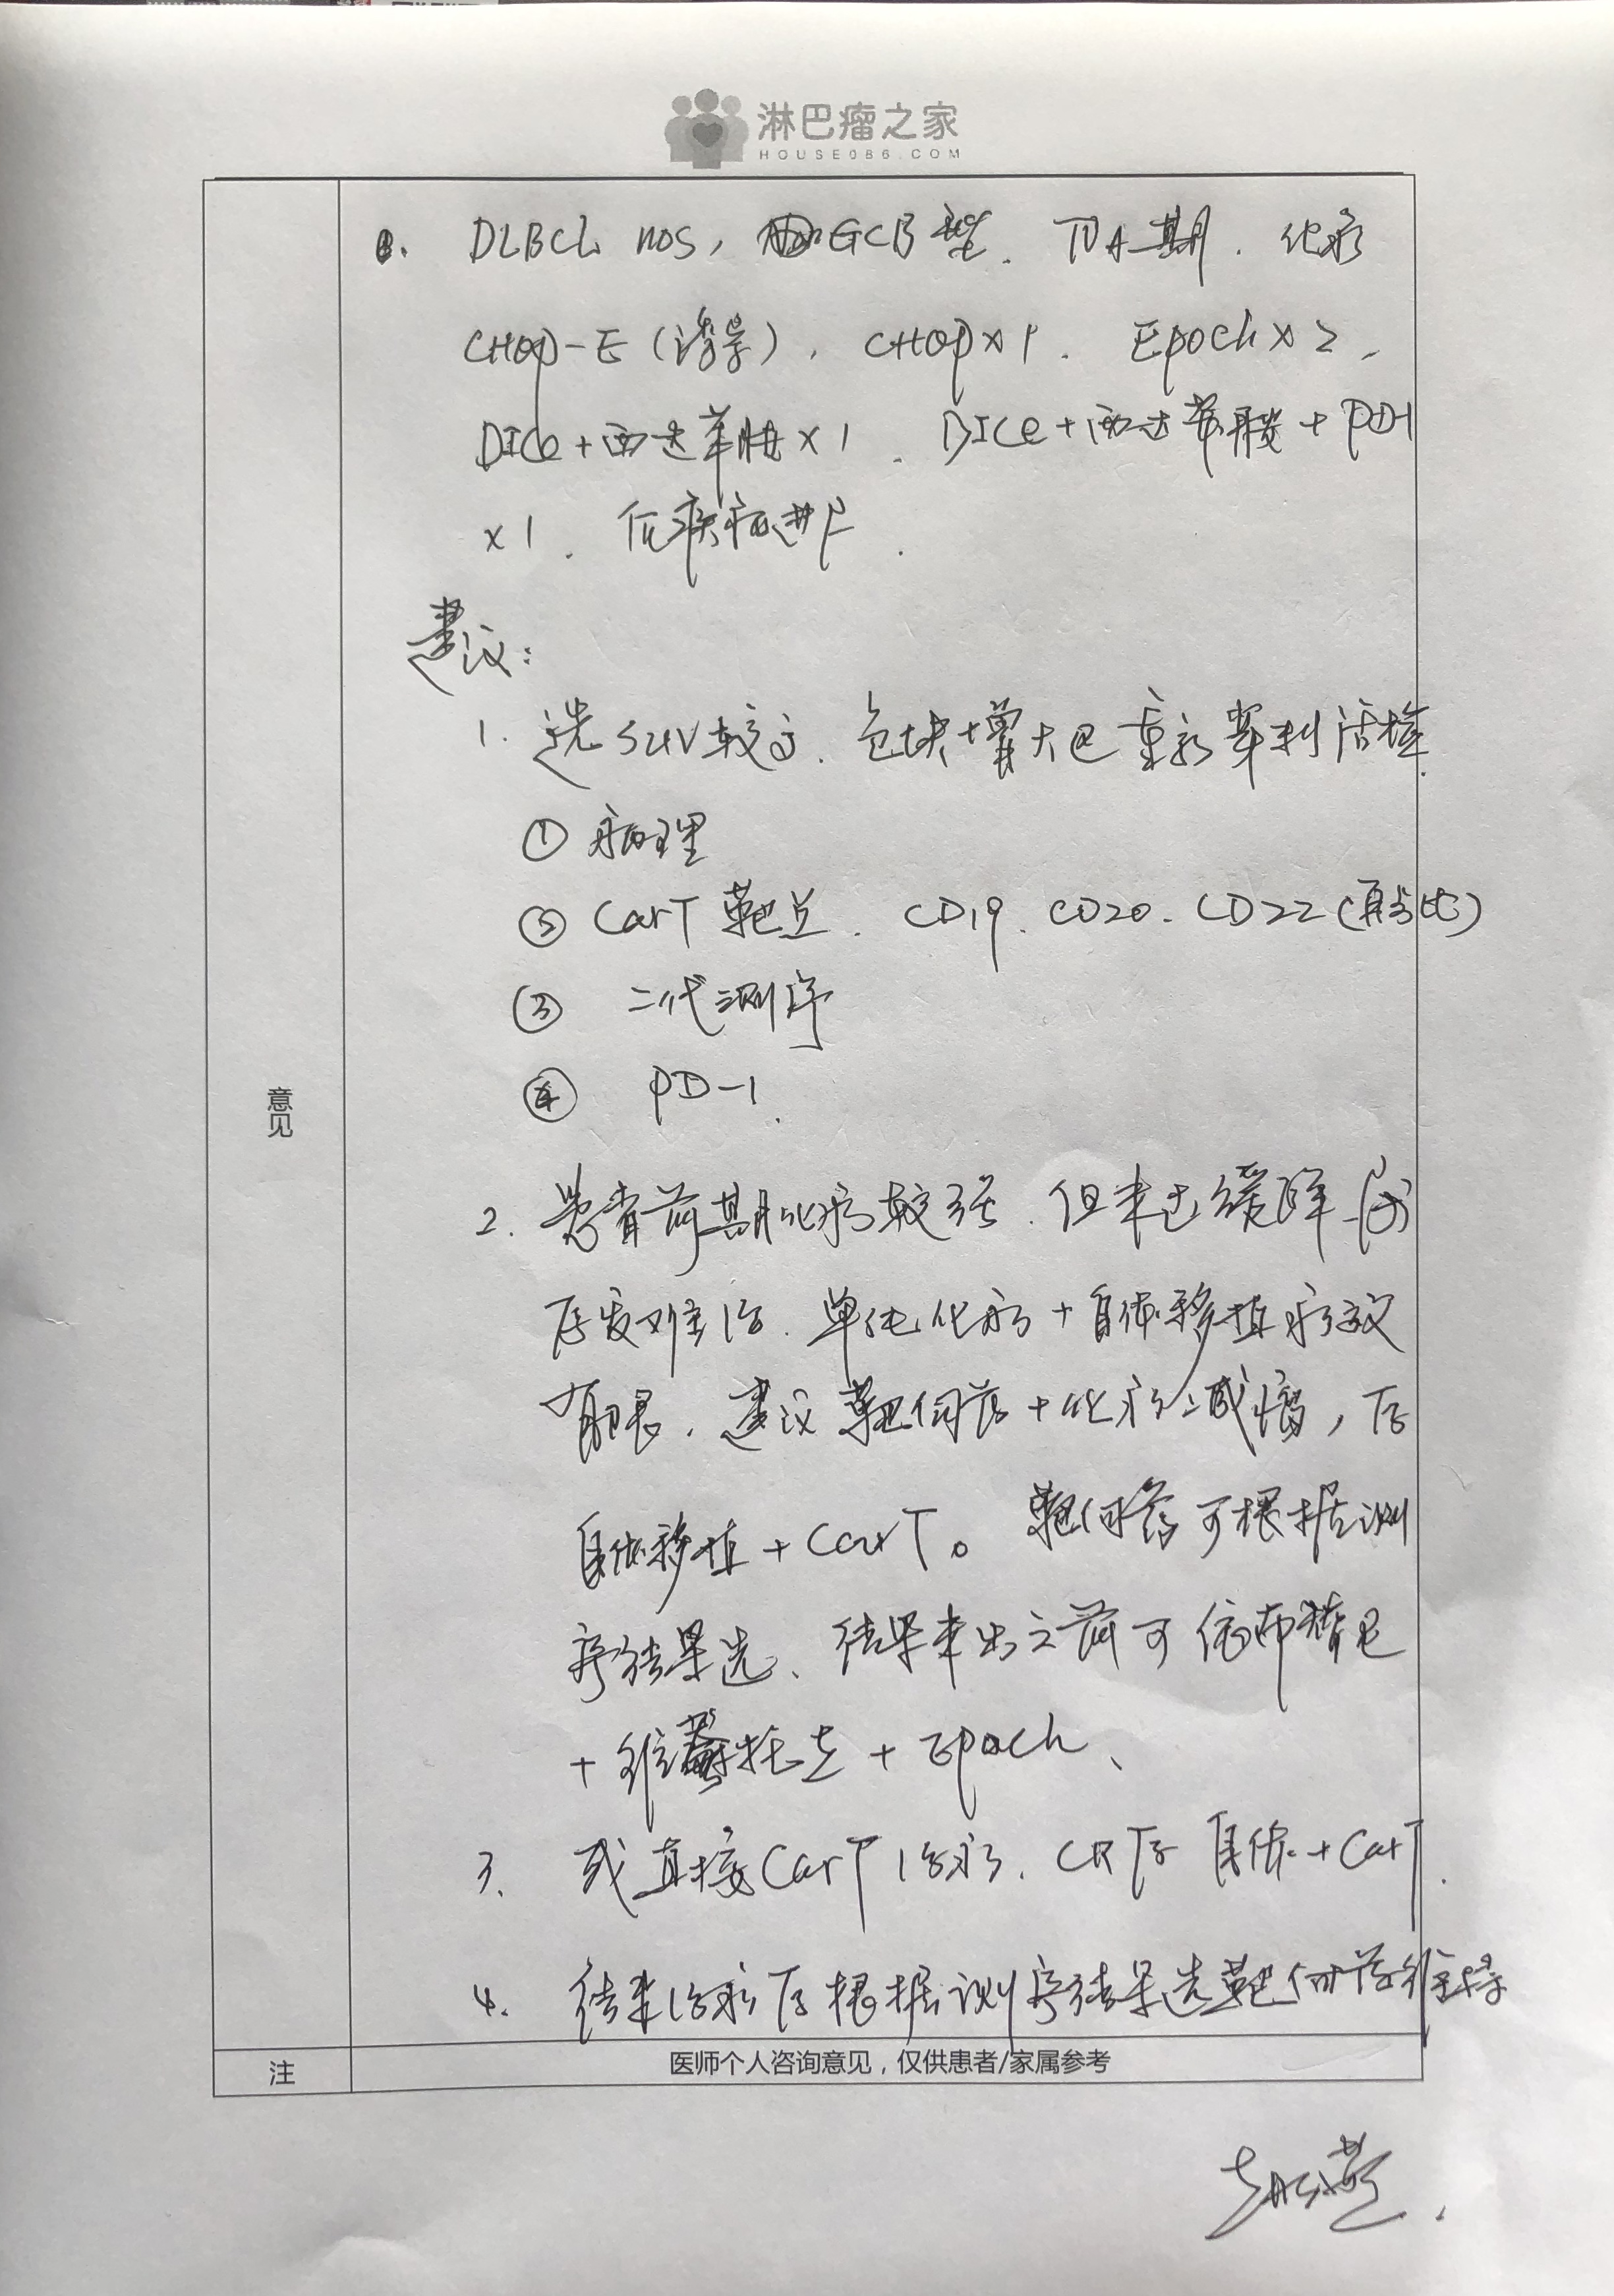 淋巴瘤之家
HOUSE086.COM
DLBCL nos, GCB型. ⅣA期. 化疗
CHOP-E (诱导), CHOP×1. Epoch×2、
DICe+西达苯胺×1. DICe+西达苯胺+PD-1
×1. 疾病进展.
建议:
1. 选SUV较高. 包块增大的重新穿刺活检.
① 病理
② CarT 靶点. CD19. CD20. CD22(百分比)
③ 二代测序
④ PD-1.
意见
2. 患者前期化疗较强. 但未达缓解.
原发难治. 单纯化疗+自体移植疗效
有限. 建议靶向药+化疗减瘤, 后
自体移植+CarT。靶向药可根据测
序结果选、结果未出之前可依布替尼
+维奈托克+Epoch、
3. 或直接CarT治疗. CR后 自体+CarT.
4. 结束治疗后根据测序结果选靶向药维持
注
医师个人咨询意见，仅供患者/家属参考